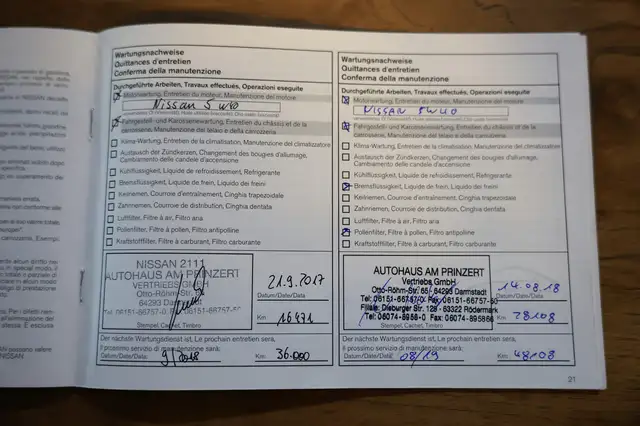 Wartungsnachweise
Quittances d'entretien
Conferma della manutenzione
Durchgeführte Arbeiten, Travaux effectués, Operazioni eseguite
Motorwartung, Entretien du moteur, Manutenzione del motore
Nissan 5W40
Fahrgestell- und Karosseriewartung, Entretien du châssis et de la
carrosserie, Manutenzione del telaio e della carrozzeria
Klima-Wartung, Entretien de la climatisation, Manutenzione del climatizzatore
Austausch der Zündkerzen, Changement des bougies d'allumage,
Cambiamento delle candele d'accensione
Kühlflüssigkeit, Liquide de refroidissement, Refrigerante
Bremsflüssigkeit, Liquide de frein, Liquido dei freini
Keilriemen, Courroie d'entraînement, Cinghia trapezoidale
Zahnriemen, Courroie de distribution, Cinghia dentata
Luftfilter, Filtre à air, Filtro aria
Pollenfilter, Filtre à pollen, Filtro antipolline
Kraftstofffilter, Filtre à carburant, Filtro carburante
NISSAN 2111
AUTOHAUS AM PRINZERT
VERTRIEBS GMBH
Otto-Röhm-Str.
64293 Darmstadt
Stempel, Cachet, Timbro
21.9.2017
Datum/Date/Data
16471
Km
Der nächste Wartungsdienst ist, Le prochain entretien sera,
Il prossimo servizio di manutenzione sarà:
Datum/Date/Data: 9/2018 Km: 36.000
Wartungsnachweise
Quittances d'entretien
Conferma della manutenzione
Durchgeführte Arbeiten, Travaux effectués, Operazioni eseguite
Motorwartung, Entretien du moteur, Manutenzione del motore
NISSAN 5W40
Fahrgestell- und Karosseriewartung, Entretien du châssis et de la
carrosserie, Manutenzione del telaio e della carrozzeria
Klima-Wartung, Entretien de la climatisation, Manutenzione del climatizzatore
Austausch der Zündkerzen, Changement des bougies d'allumage,
Cambiamento delle candele d'accensione
Kühlflüssigkeit, Liquide de refroidissement, Refrigerante
Bremsflüssigkeit, Liquide de frein, Liquido dei freini
Keilriemen, Courroie d'entraînement, Cinghia trapezoidale
Zahnriemen, Courroie de distribution, Cinghia dentata
Luftfilter, Filtre à air, Filtro aria
Pollenfilter, Filtre à pollen, Filtro antipolline
Kraftstofffilter, Filtre à carburant, Filtro carburante
AUTOHAUS AM PRINZERT
Vertriebs GmbH
Otto-Röhm-Str. 65, 64293 Darmstadt
Tel. 06151-66757-0 Fax 06151-66757-50
Filiale: Dieburger Str. 128 - 63322 Rödermark
Tel: 06074-8958-0 Fax: 06074-895868
Stempel, Cachet, Timbro
14.08.18
Datum/Date/Data
28108
Km
Der nächste Wartungsdienst ist, Le prochain entretien sera,
Il prossimo servizio di manutenzione sarà:
Datum/Date/Data: 08/19 Km: 48108
21